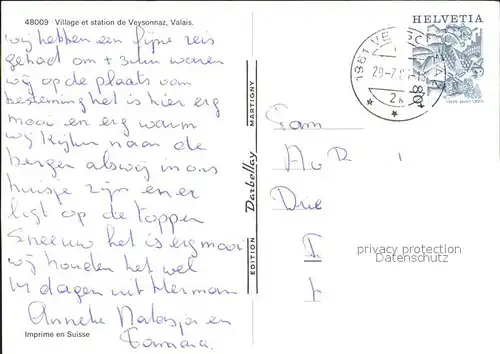 48009 Village et station de Veysonnaz, Valais.
wij hebben een fijne reis
gehad om + 3 uur waren
wij op de plaats van
bestemming het is hier erg
mooi en erg warm
wij kijken naar de
bergen als wij in ons
huisje zijn en er
ligt op de toppen
Sneeuw het is erg mooi
wij houden het wel
14 dagen uit Herman
Anneke Natasja en
Tamara.
Imprime en Suisse
EDITION Darbellay MARTIGNY
HELVETIA
80
1981 VE
29-7
Fam
Drie
privacy protection
Ansichtskartenversand.com